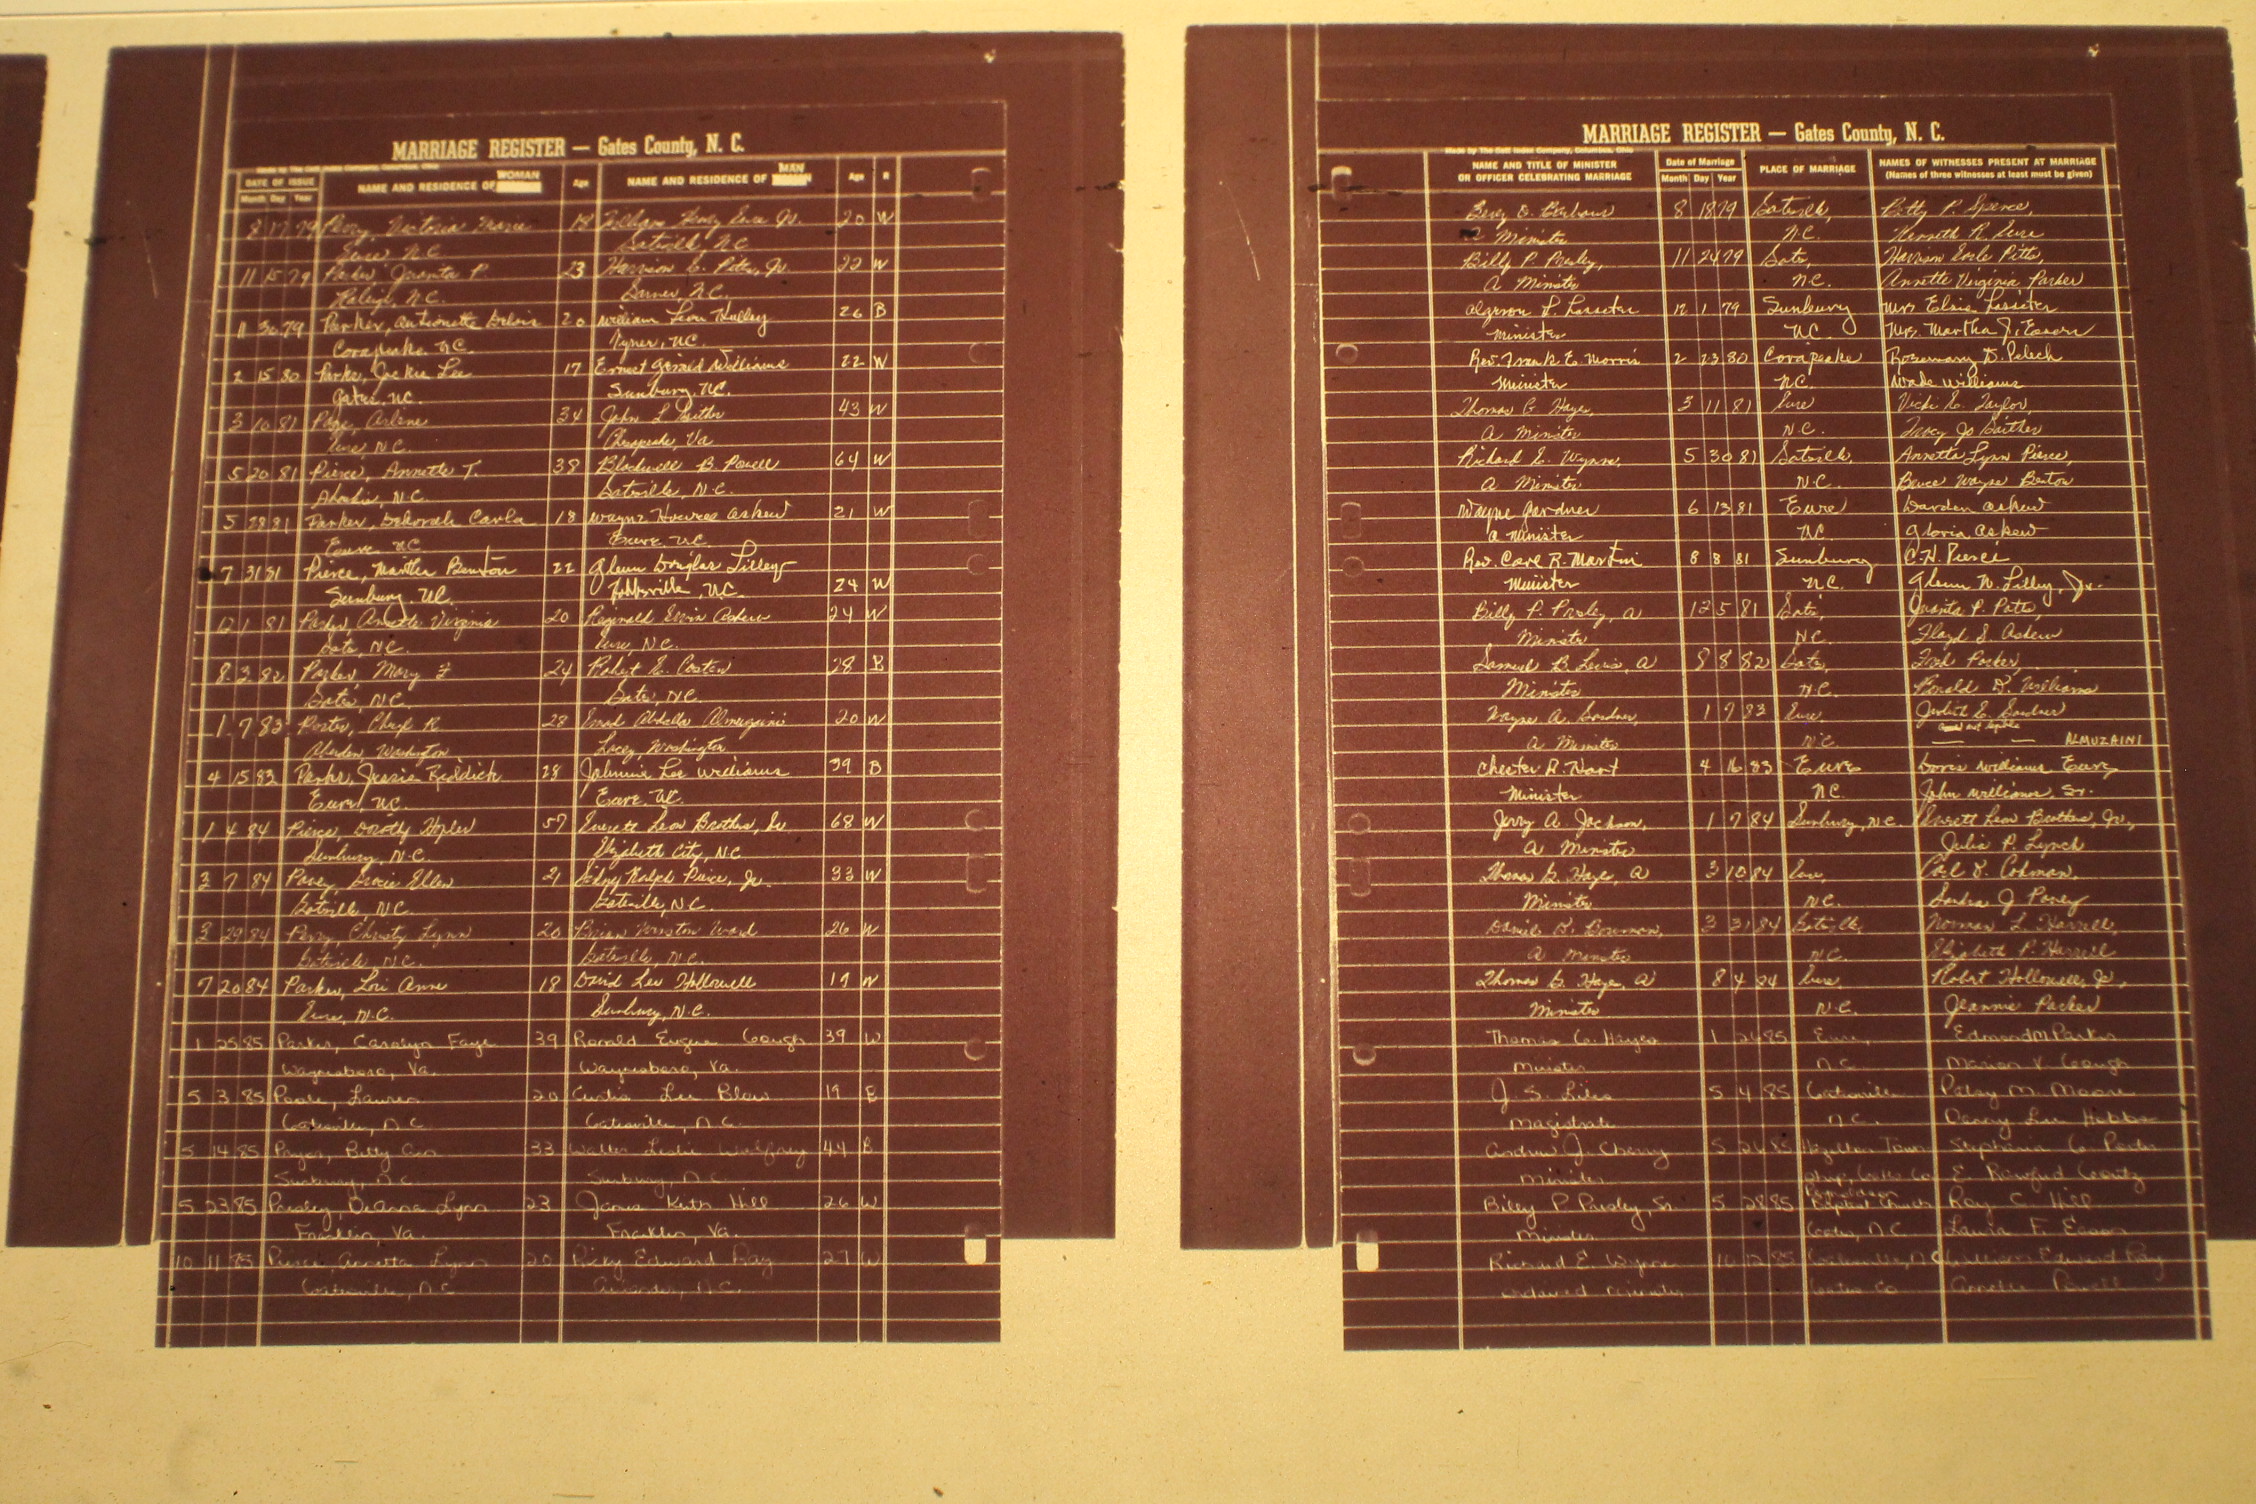 MARRIAGE REGISTER — Gates County, N. C.
DATE OF ISSUE
Month Day Year
NAME AND RESIDENCE OF WOMAN
Age
NAME AND RESIDENCE OF MAN
Age
R
8 17 79 Perry, Victoria Marie 18 William Henry Eure Jr. 20 W
Eure N.C. Gatesville N.C.
11 15 79 Parker, Juanita P. 23 Harrison E. Pitts, Jr. 22 W
Raleigh, N.C. Garner, N.C.
11 30 79 Parker, Antionette Delois 20 William Leon Hulley 26 B
Corapeake N.C. Tyner, N.C.
2 15 80 Parks, Jackie Lee 17 Ernest Gerald Williams 22 W
Gates, N.C. Sunbury, N.C.
3 10 81 Page, Arlene 34 John L. 43 W
Eure N.C. Chesapeake, Va
5 20 81 Pierce, Annette T. 38 Blackwell B. Powell 64 W
Ahoskie, N.C. Gatesville, N.C.
5 28 81 Parker, Deborah Carla 18 Wayne Askew 21 W
Eure N.C. Eure N.C.
7 31 81 Pierce, Martha Benton 22 Glenn Douglas Lilley
Sunbury, N.C. Hobbsville, N.C. 24 W
12 1 81 Parker, Annette Virginia 20 Reginald Ervin Askew 24 W
Gates, N.C. Eure, N.C.
8 3 82 Parker Mary F 24 Robert E. Costen 28 B
Gates, N.C. Gates, N.C.
1 7 83 Porter, Cheryl R 28 Emad Abdalla Almuzaini 20 W
Aberdeen, Washington Lacey, Washington
4 15 83 Parks, Jessie Reddick 28 Johnnie Lee Williams 39 B
Eure, N.C. Eure, N.C.
1 4 84 Pierce, Dorothy Hofler 57 Everett Leon Brothers, Sr 68 W
Sunbury, N.C. Elizabeth City, N.C.
3 7 84 Pavey, Gracie Ellen 21 Edng Ralph Pierce, Jr. 33 W
Gatesville, N.C. Gatesville, N.C.
3 29 84 Perry, Christy Lynn 20 Brian Winston Ward 26 W
Gatesville, N.C. Gatesville, N.C.
7 20 84 Parker, Lori Anne 18 David Lee Hollowell 19 W
Eure, N.C. Sunbury, N.C.
1 25 85 Parker, Carolyn Faye 39 Ronald Eugene Gough 39 W
Waynesboro, Va. Waynesboro, Va.
5 3 85 Poole, Lauren 20 Curtis Lee Blow 19 B
Gatesville, N.C. Gatesville, N.C.
5 14 85 Pryor, Betty Ann 33 Walter Leslie 44 B
Sunbury, N.C. Sunbury, N.C.
5 23 85 Presley, DeAnna Lynn 23 James Keith Hill 26 W
Franklin, Va. Franklin, Va.
10 11 85 Pierce, Annetta Lynn 20 Ricky Edward Ray 27 W
Gatesville, N.C. Aulander, N.C.
MARRIAGE REGISTER — Gates County, N. C.
NAME AND TITLE OF MINISTER
OR OFFICER CELEBRATING MARRIAGE
Date of Marriage
Month Day Year
PLACE OF MARRIAGE
NAMES OF WITNESSES PRESENT AT MARRIAGE
(Names of three witnesses at least must be given)
8 18 79 Gatesville, Betty P. Spence,
a Minister N.C. Kenneth R. Eure
Billy P. Presley, 11 24 79 Gates, Harrison Earle Pitts,
a Minister N.C. Annette Virginia Parker
Algernon L. Lassiter 12 1 79 Sunbury Mrs Elsie Lassiter
minister N.C. Mrs. Martha J. Eason
Rev. Frank E. Morris 2 23 80 Corapeake Rosemary D. Pelech
Minister N.C. Wade Williams
Thomas G. Hayes, 3 11 81 Eure Vicki E. Taylor,
A Minister N.C. Tracy Jo
Richard E. Wynne, 5 30 81 Gatesville, Annetta Lynn Pierce,
a Minister N.C. Bruce Wayne Benton
Wayne Gardner 6 13 81 Eure Darden Askew
a minister N.C. Gloria Askew
Rev. Carl R. Martin 8 8 81 Sunbury C.H. Pierce
Minister N.C. Glenn W. Lilley, Jr.
Billy P. Presley, a 12 5 81 Gates, Juanita P. Pitts,
Minister N.C. Floyd E. Askew
Samuel B. Lewis, a 8 8 82 Gates, Fred Parker,
Minister N.C. Ronald D. Williams
Wayne A. Gardner, 1 7 83 Eure, Judith E. Gardner
a Minister N.C. ALMUZAINI
Chester R. Hart 4 16 83 Eure Doris Williams Eure
Minister N.C. John Williams Sr.
Jerry A. Jackson, 1 7 84 Sunbury, N.C. Everett Leon Brothers, Jr.,
a Minister Julia P. Lynch
Thomas G. Hayes, a 3 10 84 Eure, Carl D. Cohman,
Minister N.C. Sandra J Pavey
Daniel D. Bowman, 3 31 84 Gatesville, Norman L. Harrell,
a Minister N.C. Elizabeth P. Harrell
Thomas G. Hayes, a 8 4 84 Eure, Robert Hollowell, Jr.,
Minister N.C. Jeannie Parker
Thomas G. Hayes 1 26 85 Eure, Edmond M Parker
minister N.C. Marion V. Gough
J. S. Liles 5 4 85 Gatesville Patsy M. Moore
magistrate N.C. Denny Lee Hobbs
Andrew J. Cherry 5 26 85 Stephanie
minister ship, Gates Co E.
Billy P Presley, Sr. 5 28 85 Baptist Church Ray C Hill
Minister Gates, N.C Laura F. Eason
Richard E. Wynne 10 12 85 Gatesville, N.C William Edward Ray
ordained minister Gates Co Annette Powell